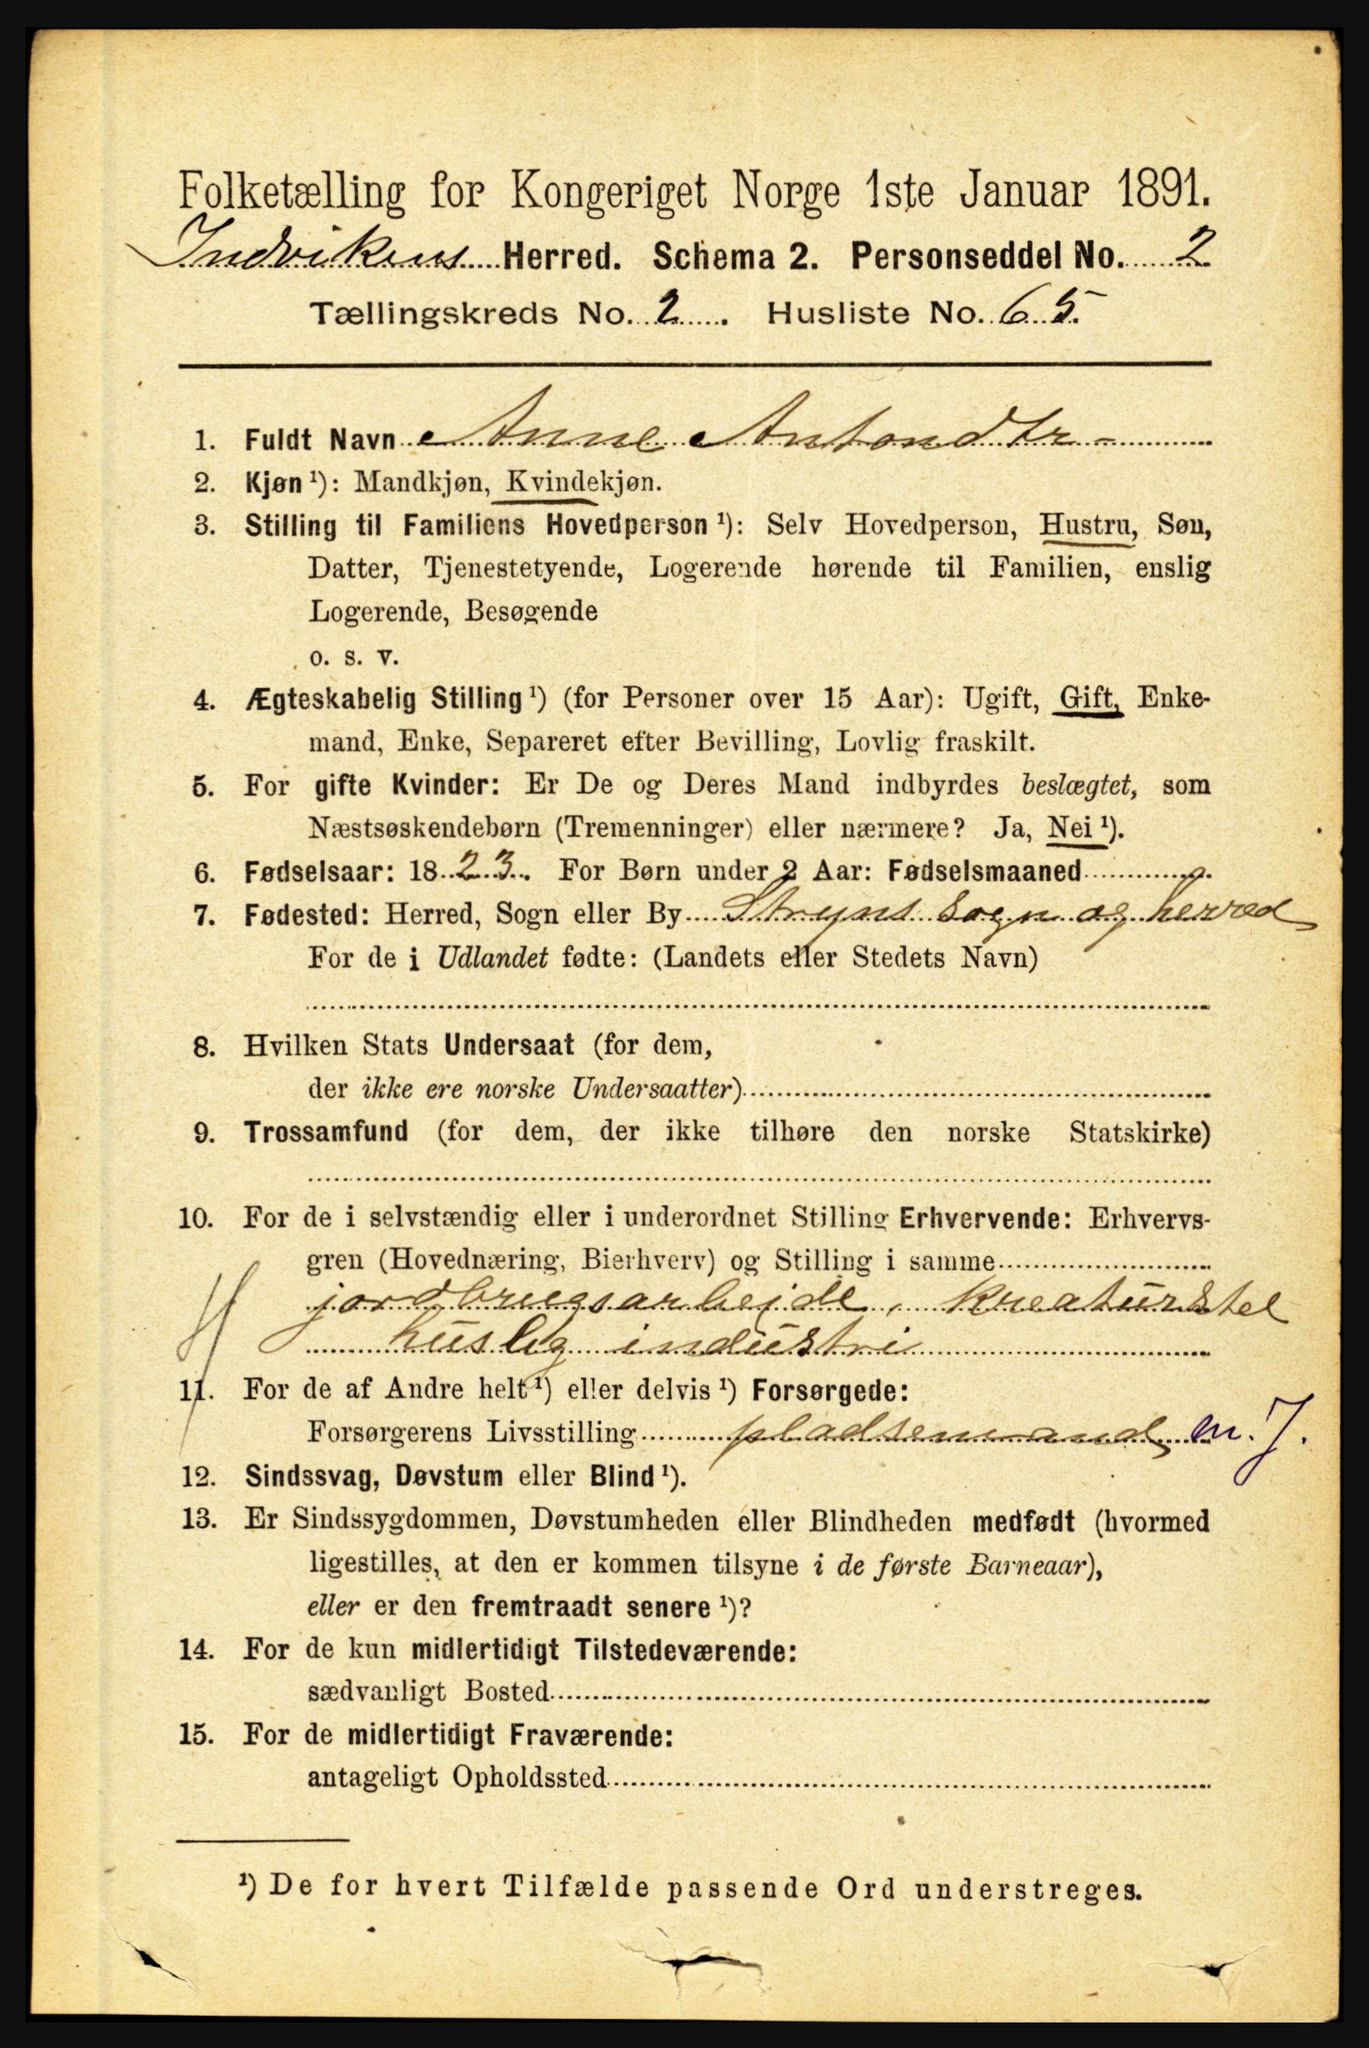 Folketælling for Kongeriget Norge 1ste Januar 1891.
Indvikens Herred. Schema 2. Personseddel No. 2
Tællingskreds No. 2. Husliste No. 65.
1. Fuldt Navn Anne Antondtr
2. Kjøn ¹): Mandkjøn, Kvindekjøn.
3. Stilling til Familiens Hovedperson ¹): Selv Hovedperson, Hustru, Søn,
Datter, Tjenestetyende, Logerende hørende til Familien, enslig
Logerende, Besøgende
o. s. v.
4. Ægteskabelig Stilling ¹) (for Personer over 15 Aar): Ugift, Gift, Enke-
mand, Enke, Separeret efter Bevilling, Lovlig fraskilt.
5. For gifte Kvinder: Er De og Deres Mand indbyrdes beslægtet, som
Næstsøskendebørn (Tremenninger) eller nærmere? Ja, Nei ¹).
6. Fødselsaar: 1823. For Børn under 2 Aar: Fødselsmaaned
7. Fødested: Herred, Sogn eller By Stryns sogn og herred
For de i Udlandet fødte: (Landets eller Stedets Navn)
8. Hvilken Stats Undersaat (for dem,
der ikke ere norske Undersaatter)
9. Trossamfund (for dem, der ikke tilhøre den norske Statskirke)
10. For de i selvstændig eller i underordnet Stilling Erhvervende: Erhvervs-
gren (Hovednæring, Bierhverv) og Stilling i samme
jordbrugsarbeide, kreaturstel
huslig industri
11. For de af Andre helt ¹) eller delvis ¹) Forsørgede:
Forsørgerens Livsstilling pladsemand m. J.
12. Sindssvag, Døvstum eller Blind ¹).
13. Er Sindssygdommen, Døvstumheden eller Blindheden medfødt (hvormed
ligestilles, at den er kommen tilsyne i de første Barneaar),
eller er den fremtraadt senere ¹)?
14. For de kun midlertidigt Tilstedeværende:
sædvanligt Bosted
15. For de midlertidigt Fraværende:
antageligt Opholdssted
¹) De for hvert Tilfælde passende Ord understreges.